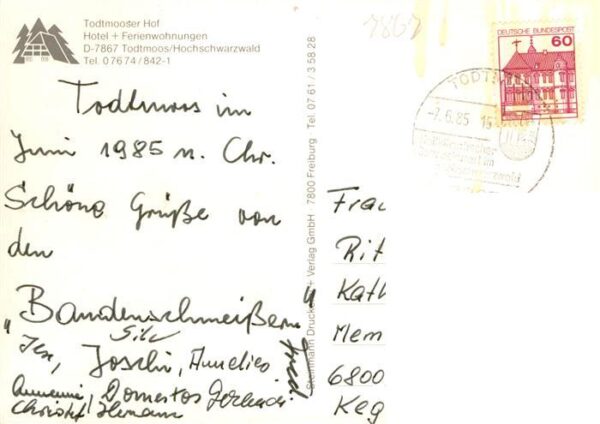 Todtmooser Hof
Hotel + Ferienwohnungen
D-7867 Todtmoos/Hochschwarzwald
Tel. 0 76 74 / 842-1
7867
DEUTSCHE BUNDESPOST
60
TODTM
-7.6.85 15
Todtmoos im
Juni 1985 n. Chr.
Schöne Grüße von
den
"Bandenschmeißern"
Silv
Jex, Joschi, Annelies
Fred
Annemie, Domestos
Christof Hermann
Druck + Verlag GmbH 7800 Freiburg Tel. 07 61 / 3 58 28
Frau
Rit
Kath
Mem
6800
Keg